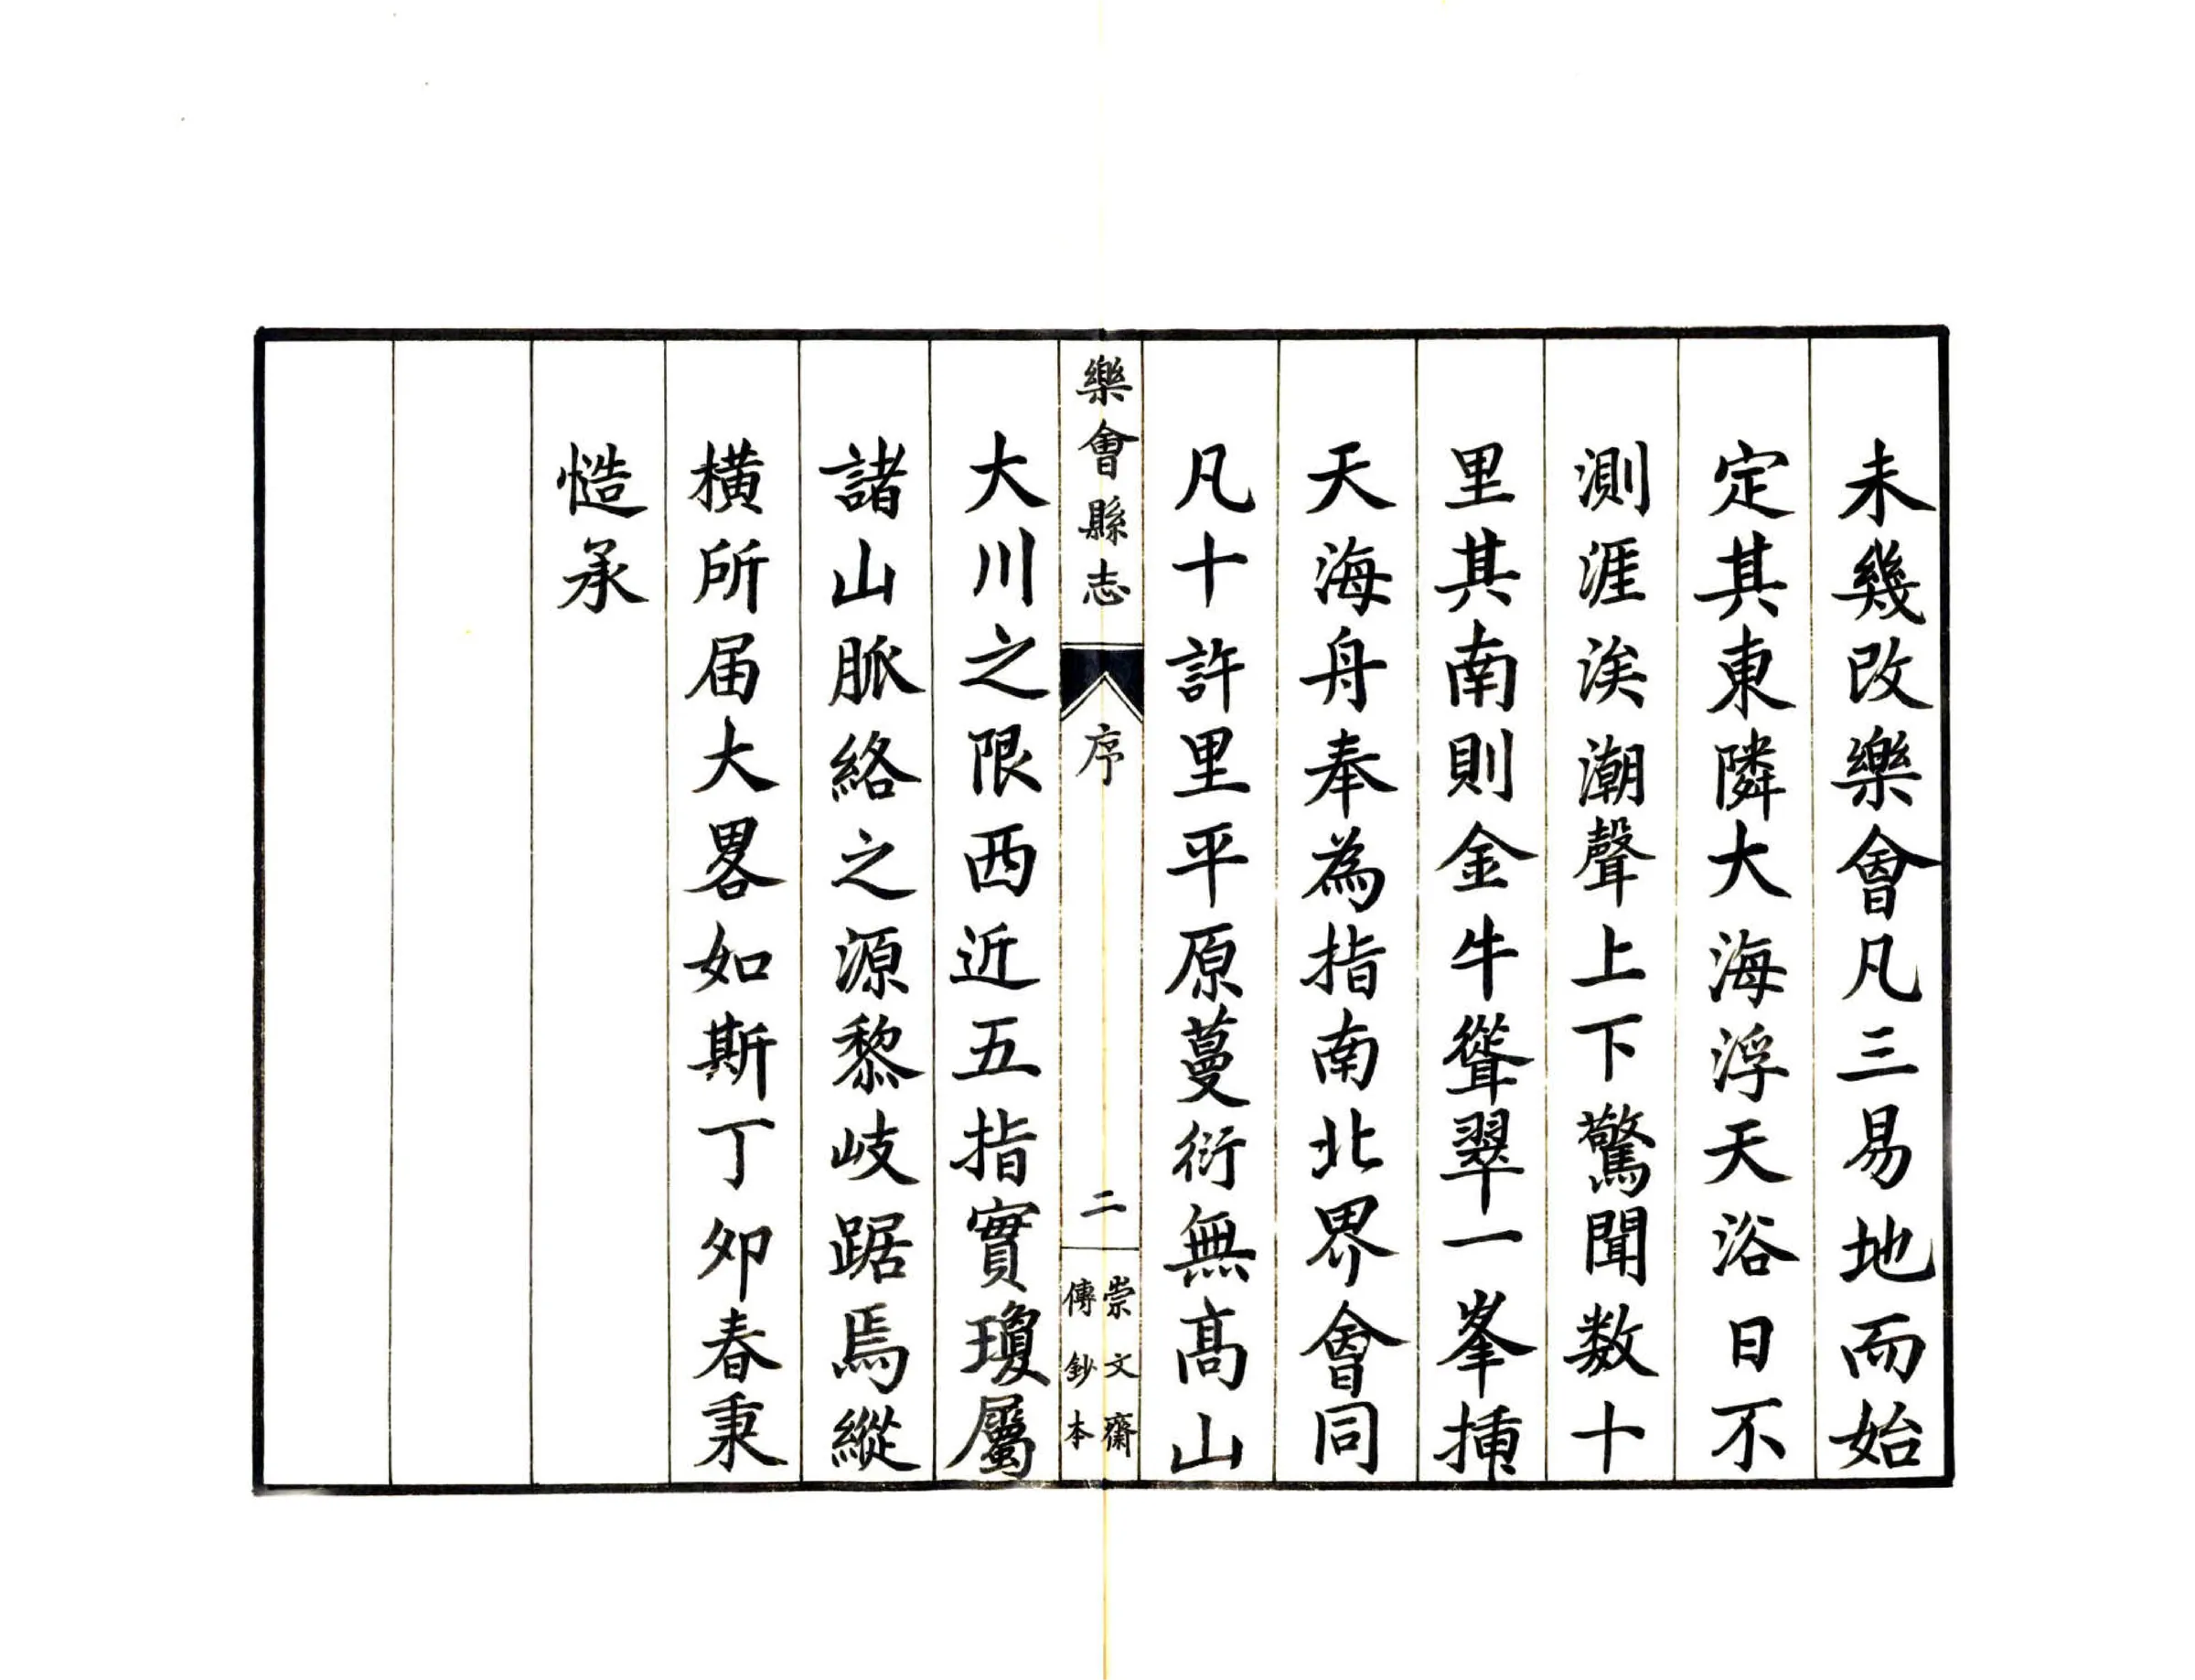 未幾改樂會凡三易地而始
定其東隣大海浮天浴日不
測涯涘潮聲上下驚聞数十
里其南則金牛聳翠一峯挿
天海舟奉為指南北界會同
凡十許里平原蔓衍無高山
樂會縣志
序
二
崇文齋
傳鈔本
大川之限西近五指實瓊屬
諸山脈絡之源黎岐踞焉縱
橫所届大畧如斯丁夘春秉
慥承